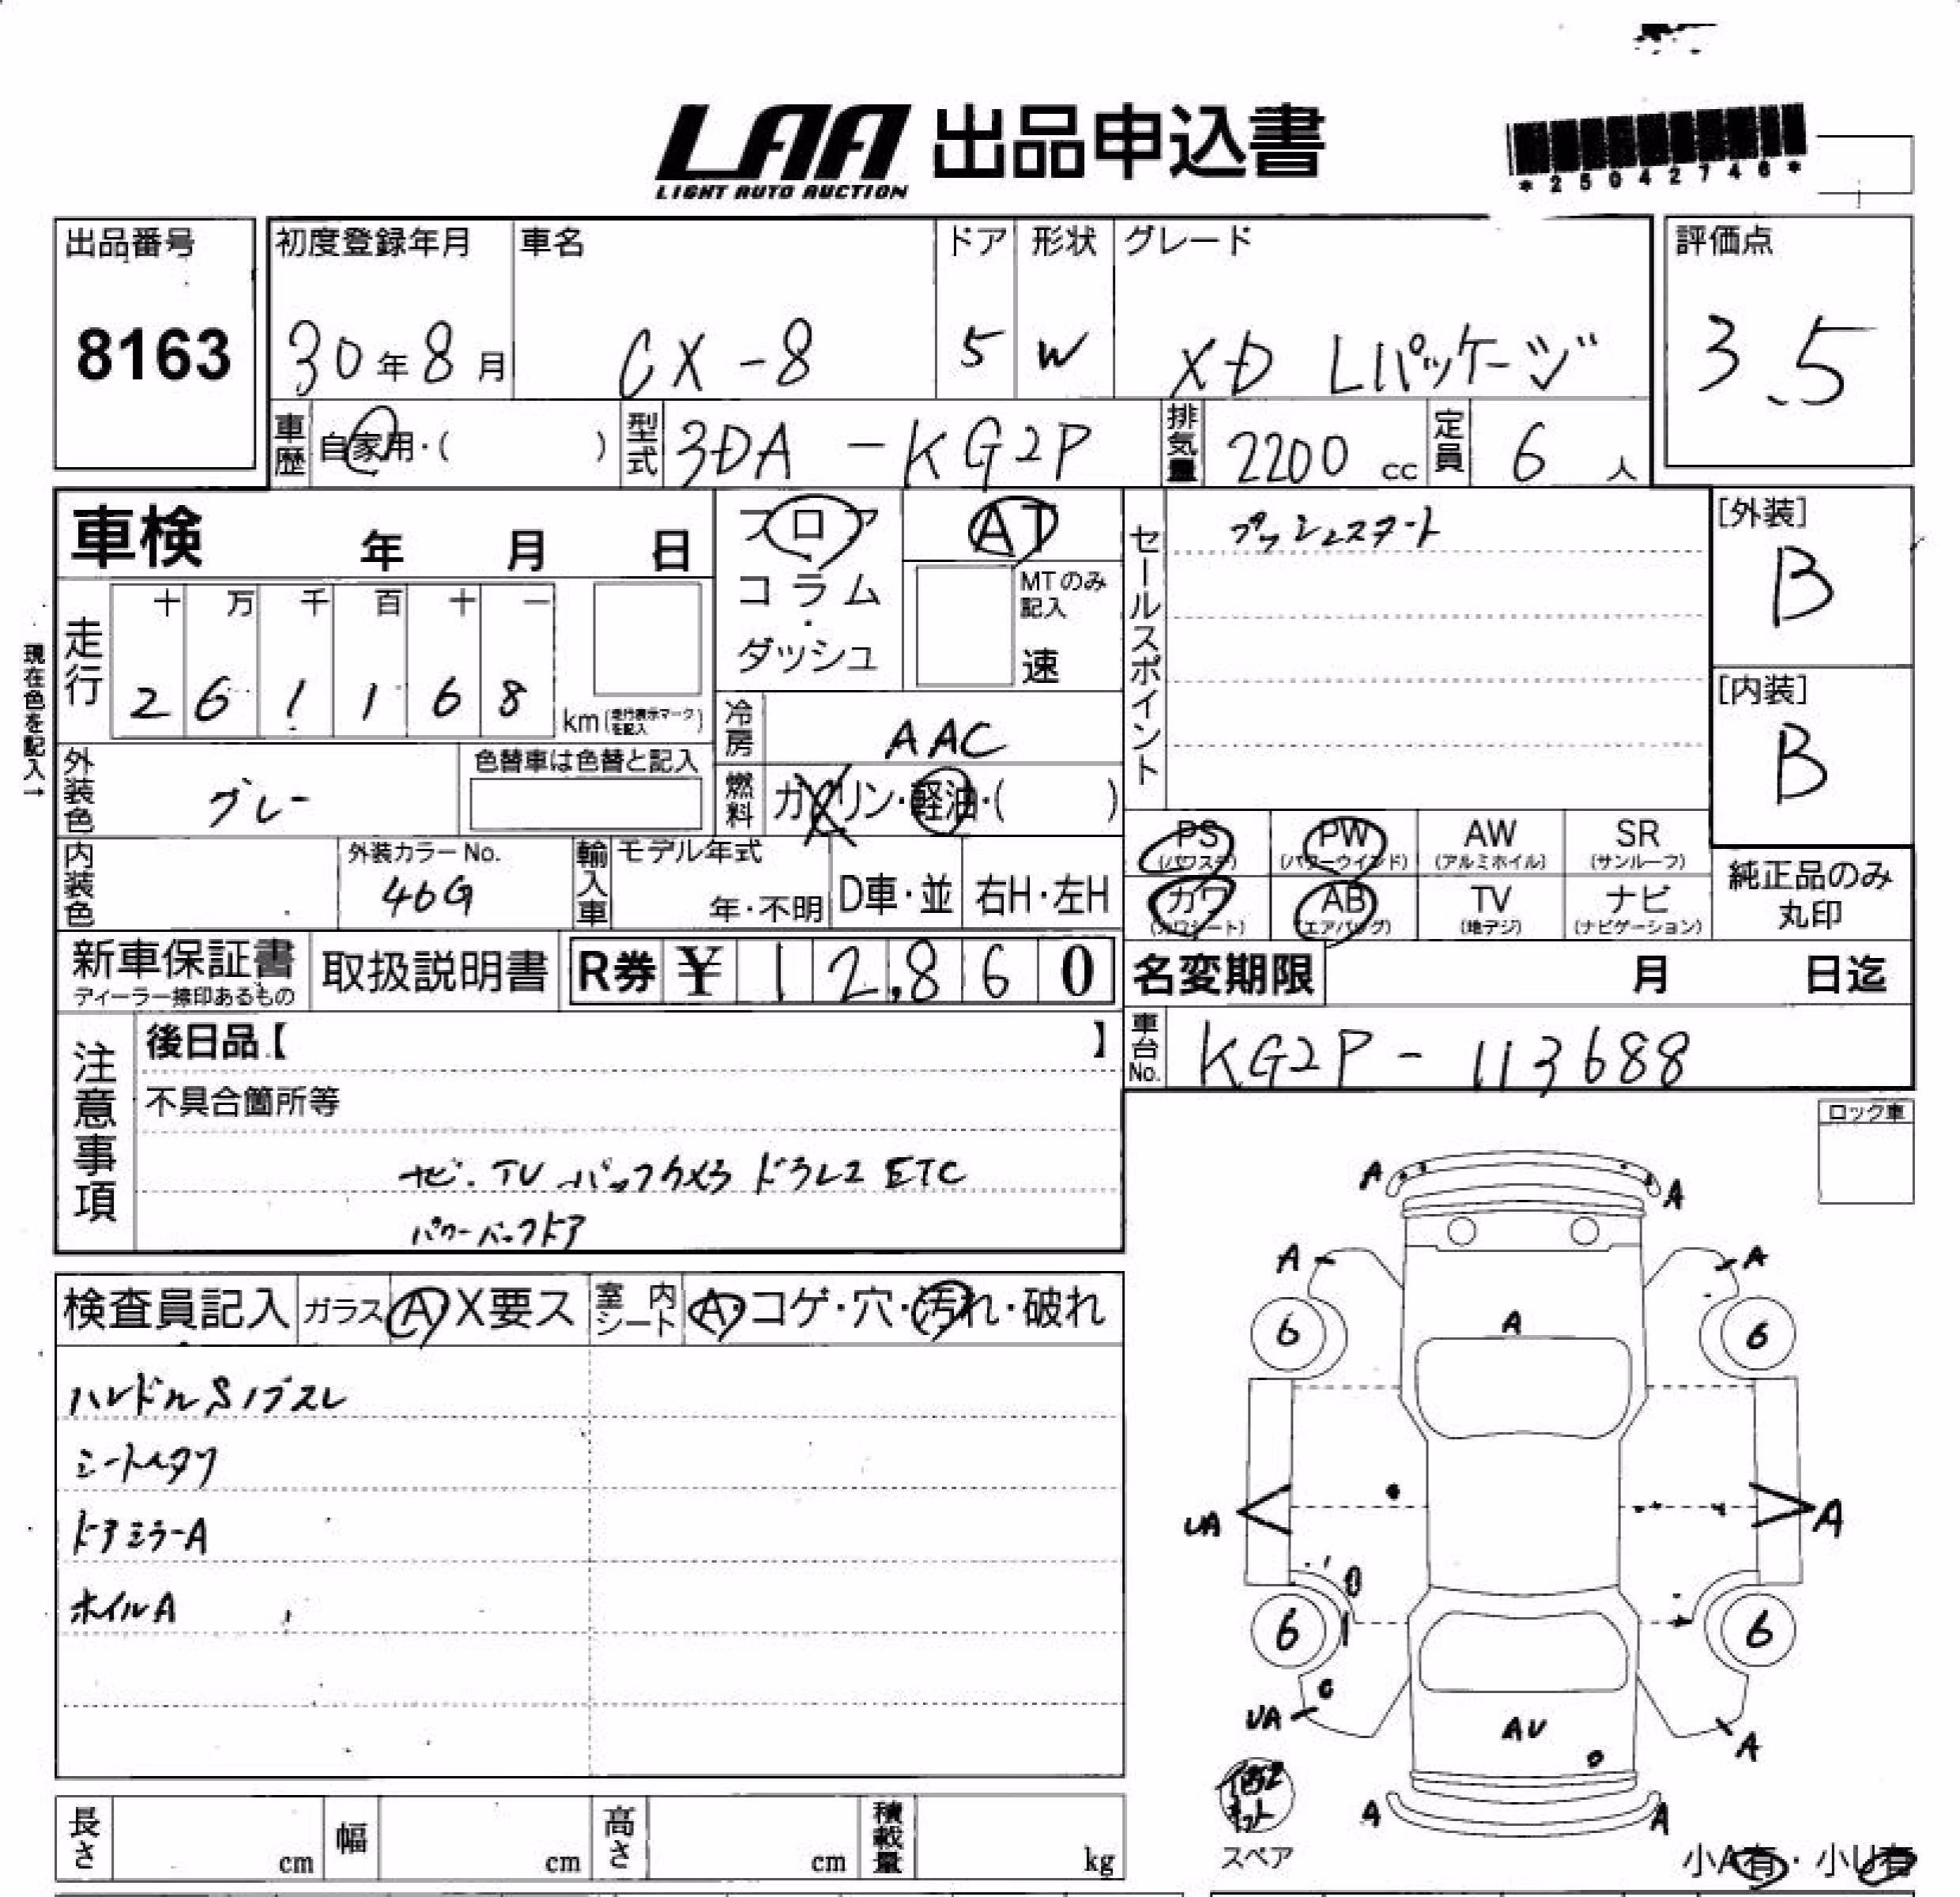 LAA 出品申込書
LIGHT AUTO AUCTION
*25042746*
出品番号 初度登録年月 車名 ドア 形状 グレード 評価点
8163 30年8月 CX-8 5 W XD Lパッケージ 3.5
車歴 自家用・( ) 型式 3DA-KG2P 排気量 2200cc 定員 6人
車検 年 月 日 フロア AT
コラム・ダッシュ MTのみ記入 速
現在色を記入→
走行 十 万 千 百 十 一
2 6 1 1 6 8 km(走行表示マークを記入)
冷房 AAC
外装色 グレー 色替車は色替と記入
燃料 ガソリン・軽油・( )
内装色 外装カラーNo. 46G 輸入車 モデル年式 年・不明 D車・並 右H・左H
新車保証書 ディーラー捺印あるもの 取扱説明書 R券 ¥12,860
セールスポイント プッシュスタート
[外装] B
[内装] B
PS (パワステ) PW (パワーウインド) AW (アルミホイル) SR (サンルーフ)
カワ (カワシート) AB (エアバッグ) TV (地デジ) ナビ (ナビゲーション)
純正品のみ丸印
名変期限 月 日迄
車台No. KG2P-113688
注意事項 後日品【 】
不具合箇所等
ナビ.TV バックカメラ ドラレコ ETC
パワーバックドア
ロック車
検査員記入 ガラス A X要ス 室内シート A・コゲ・穴・汚れ・破れ
ハンドルSノブスレ
シートヘタリ
ドアミラーA
ホイルA
A A
A A
6 A 6
UA A
6 6
UA AU A
A A
スペア
小A有・小U有
長さ cm 幅 cm 高さ cm 積載量 kg